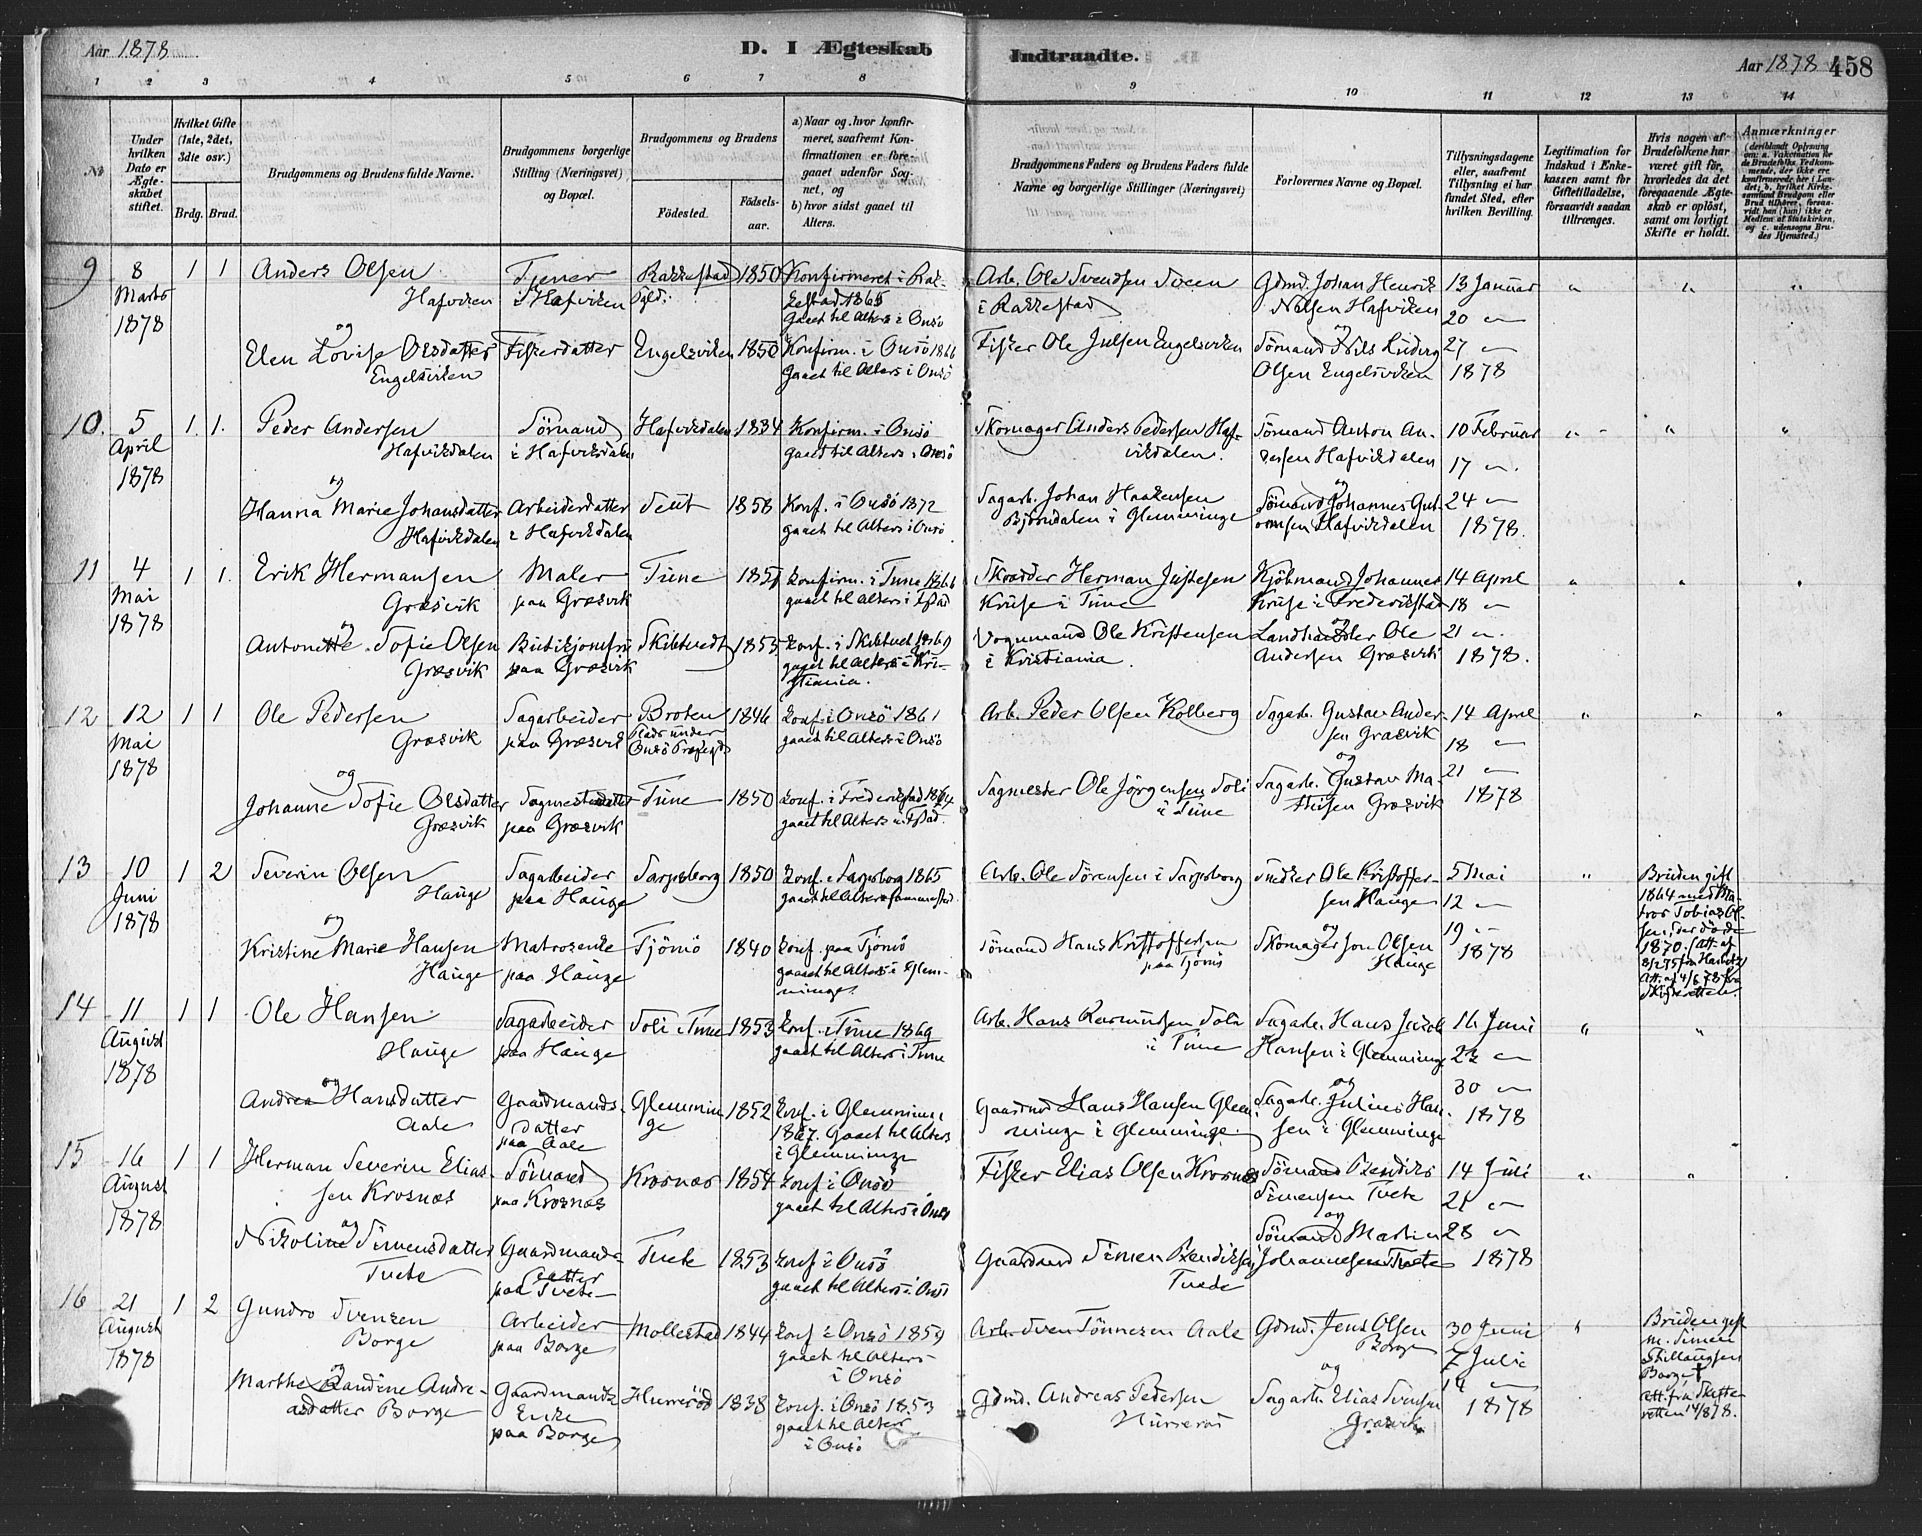 Aar 1878
D. I Ægteskab Indtraadte.
Aar 1878 458
1 2 3 4 5 6 7 8 9 10 11 12 13 14
No
Under hvilken Dato er Ægteskabet stiftet.
Hvilket Gifte (1ste, 2det, 3die osv.)
Brdg. Brud.
Brudgommens og Brudens fulde Navne.
Brudgommens borgerlige Stilling (Næringsvei) og Bopæl.
Brudgommens og Brudens
Födested.
Födselsaar.
a) Naar og hvor konfirmeret, saafremt Konfirmationen er foregaaet udenfor Sognet, og
b) hvor sidst gaaet til Alters.
Brudgommens Faders og Brudens Faders fulde Navne og borgerlige Stillinger (Næringsvei)
Forlovernes Navne og Bopæl.
Tillysningsdagene eller, saafremt Tillysning ei har fundet Sted, efter hvilken Bevilling.
Legitimation for Indskud i Enkekassen samt for Giftetilladelse, forsaavidt saadan tiltrænges.
Hvis nogen af Brudefolkene har været gift för, hvorledes da det foregaaende Ægteskab er oplöst, samt om lovligt Skifte er holdt.
Anmærkninger (deriblandt Oplysning om: a. Vakcination for de Brudefolks Vedkommende, der ikke ere konfirmerede her i Landet; b. hvilket Kirkesamfund Brudgom eller Brud tilhörer, forsaavidt han (hun) ikke er Medlem af Statskirken, og c. udensogns Brudes Hjemsted.)
9 8 Marts 1878 1 1
Anders Olsen Hafviken
Tjener i Hafviken
Rakkestad Pgld. 1850
Konfirmeret i Rakkestad 1865 gaaet til Alters i Onsö
Arb. Ole Svendsen Sveen i Rakkestad
Gdmd. Johan Henrik Nilsen Hafviken
13 Januar 20 27 1878
og
Elen Lovise Olsdatter Engelsviken
Fiskerdatter
Engelsviken 1850
Konfirm. i Onsö 1866 gaaet til Alters i Onsö
Fisker Ole Julsen Engelsviken
og Sömand Nils Ludvig Olsen Engelsviken
10. 5 April 1878 1. 1.
Peder Andersen Hafvikdalen
Sömand i Hafviksdalen
Hafvikdalen 1834
Konfirm. i Onsö gaaet til Alters i Onsö
Skomager Anders Pedersen Hafvikdalen.
Sömand Anton Andersen Hafvikdalen
10 Februar 17 24 1878.
og
Hanna Marie Johansdatter Hafvikdalen
Arbeiderdatter i Hafvikdalen
Seut 1858
Konf. i Onsö 1872 gaaet til Alters i Onsö
Sagarb. Johan Haakensen Björndalen i Glemminge
og Sömand Johannes Guttormsen Hafvikdalen
11 4 Mai 1878 1 1.
Erik Hermansen Græsvik
Maler paa Græsvik
Tune 1851
Konfirm. i Tune 1866 gaaet til Alters i Fstad
Skrædder Herman Justesen Kruse i Tune
Kjöbmand Johannes Kruse i Frederikstad
14 April 18 21 1878.
og
Antonette Sofie Olsen Græsvik
Butikjomfru paa Græsvik
Skibtvedt 1855
Konf. i Skibtvet 1869 gaaet til Alters i Kristiania.
Vognmand Ole Kristensen i Kristiania.
og Landhandler Ole Andersen Græsvik
12 12 Mai 1878 1 1
Ole Pedersen Græsvik
Sagarbeider paa Græsvik
Broten Plads under Onsö Præstegd 1846
Konf. i Onsö 1861 gaaet til Alters i Onsö
Arb. Peder Olsen Kolberg
Sagarb. Gustav Andersen Græsvik
14 April 18 21 1878
og
Johanne Sofie Olsdatter Græsvik
Sagmesterdatter paa Græsvik
Tune 1850
Konf. i Frederikstad 1864 gaaet til Alters i Fstad.
Sagmester Ole Jörgensen Soli i Tune
og Sagarb. Gustav Mathisen Græsvik
13 10 Juni 1878 1 2
Severin Olsen Hauge
Sagarbeider paa Hauge
Sarpsborg 1850
Konf. i Sarpsborg 1865 gaaet til Alters sammested.
Arb. Ole Sörensen i Sarpsborg
Snedker Ole Kristoffersen Hauge
5 Mai 12 19 1878
Bruden gift 1864 med Matros Tobias Olsen, der döde 1870.
og
Kristine Marie Hansen Hauge
Matrosenke paa Hauge
Tjömö 1840
Konf. paa Tjömö gaaet til Alters i Glemminge.
Sömand Hans Kristoffersen paa Tjömö
og Skomager Jon Olsen Hauge
14 11 August 1878 1 1
Ole Hansen Hauge
Sagarbeider paa Hauge
Soli i Tune 1853
Konf. i Tune 1869 gaaet til Alters i Tune
Arb. Hans Rasmussen Soli i Tune
Sagarb. Hans Jacob Hansen i Glemminge
16 Juni 23 30 1878
og
Andrea Hansdatter Aale
Gaardmandsdatter paa Aale
Glemminge 1852
Konf. i Glemminge 1867. Gaaet til Alters i Glemminge
Gaardmd Hans Hansen Glemminge i Glemminge
og Sagarb. Julius Hansen i Glemminge
15 16 August 1878 1 1
Herman Severin Eliassen Krosnæs
Sömand paa Krosnæs
Krosnæs 1854
Konf. i Onsö gaaet til Alters i Onsö
Fisker Elias Olsen Krosnæs
Sömand Bendiks Simensen Tvete
14 Juli 21 28 1878
og
Nikoline Simensdatter Tvete
Gaardmandsdatter paa Tvete
Tvete 1853
Konf. i Onsö gaaet til Alters i Onsö
Gaardmd Simen Bendiksen Tvete
og Sömand Martin Johannesen Tvete
16 21 August 1878 1 2
Gundro Svensen Borge
Arbeider paa Borge
Mollestad 1844
Konf. i Onsö 1859 gaaet til Alters i Onsö
Arb. Sven Tönnesen Aale
Gdmd. Jens Olsen Borge
30 Juni 7 Juli 14 1878
Bruden gift m. Simen Borge †
Att. fra Skifteretten 14/8 78.
og
Marthe Randine Andreasdatter Borge
Gaardmands Enke paa Borge
Hurrerød 1838
Konf. i Onsö 1853 gaaet til Alters i Onsö
Gdmd. Andreas Pedersen
og Sagarb. Elias Svensen Græsvik